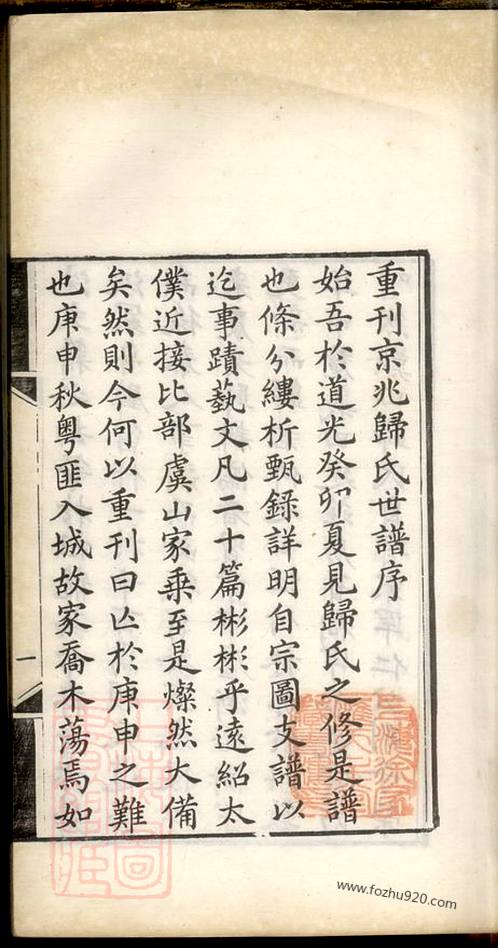 重刊京兆歸氏世譜序
始吾於道光癸卯夏見歸氏之修是譜
也條分縷析甄錄詳明自宗圖支譜以
迄事蹟藝文凡二十篇彬彬乎遠紹太
僕近接比部虞山家乘至是燦然大備
矣然則今何以重刊曰亾於庚申之難
也庚申秋粵匪入城故家喬木蕩焉如
一
www.fozhu920.com